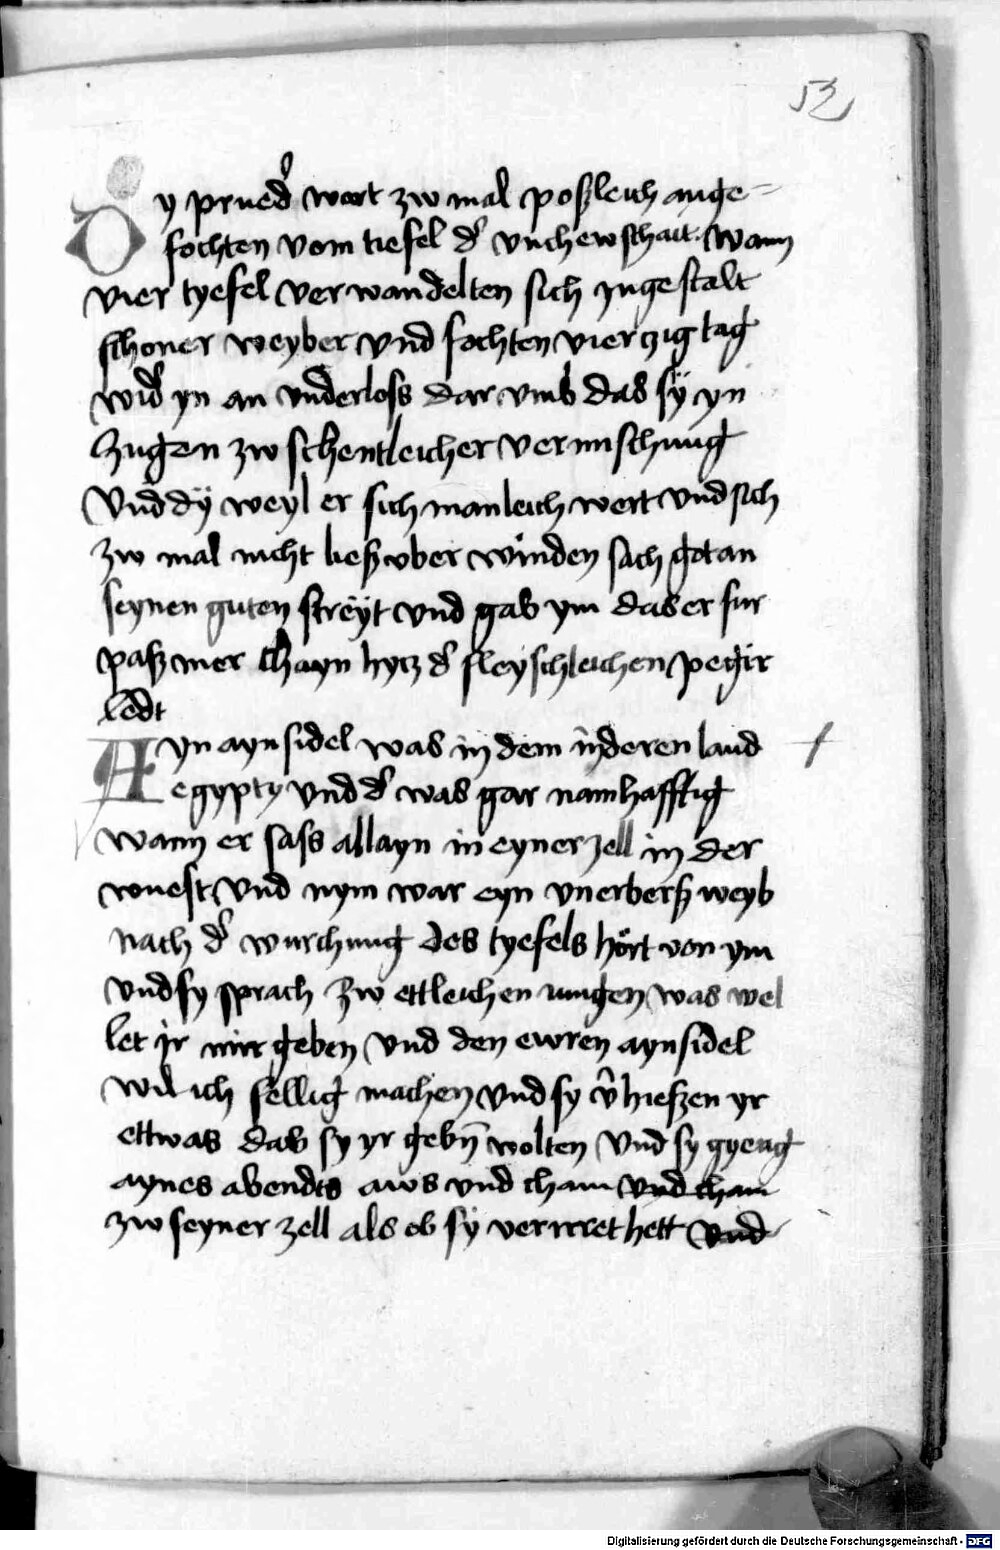 52
Dy prued͛ wort zw mal poßleich ange=
fochten vom tiefel d͛ vncheẃschait. Wann
vier tyefel verwandelten sich yn gestalt
schoner weyber vnd fochten vierzig tag
wid͛ yn an vnderloss dar vmb das sÿ yn
Zugen zw schentleicher vermischung
Vnd dÿ weyl er sich manleich wert vnd sich
zw mal nicht ließ vber winden sach got an
seynen guten streyt vnd gab ym das er fur
paß mer chayn hytz d͛ fleyschleichen pegir
ledt
Ayn aynsidel was in dem inderen land
egypty vnd d͛ was gar namhafftig
wann er sass allayn in eyner zell in der
wuest. Vnd nym war eyn vnerberß weyb
nach d͛ wurchung des tyefels hört von ym
vnd sy sprach zw ettleichen iungen was wel
let ir mir geben Vnd den ewren aynsidel
wil ich fellig machen vnd sy v͛hießen yr
ettwas das sy yr gebn̄ wolten Vnd sy gyeng
aynes abendts aws vnd cham vnd cham
zw seyner zell als ob sÿ verirret hett vnd
Digitalisierung gefördert durch die Deutsche Forschungsgemeinschaft - DFG